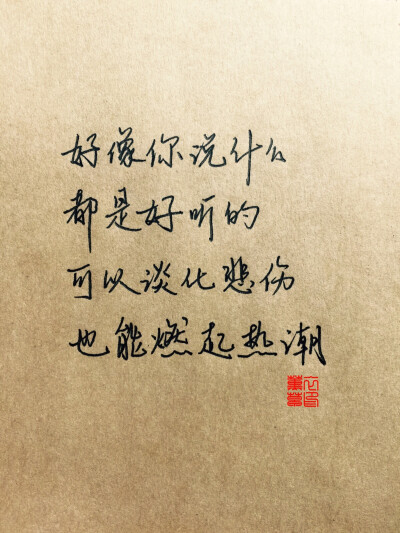 好像你说什么
都是好听的
可以淡化悲伤
也能燃起热潮